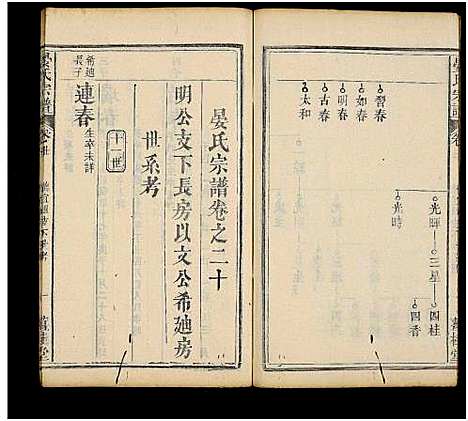 習春
如春
明春
古春
太和
光暉 三星 四桂
四香
光時
晏氏宗譜卷之二十
明公支下長房以文公希廸房
世系考
十一世
希廸長子
連春
生卒未詳
晏氏宗譜